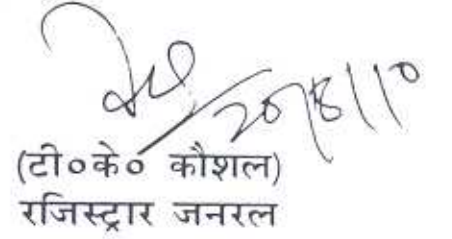 20/8/10
(टी०के० कौशल)
रजिस्ट्रार जनरल